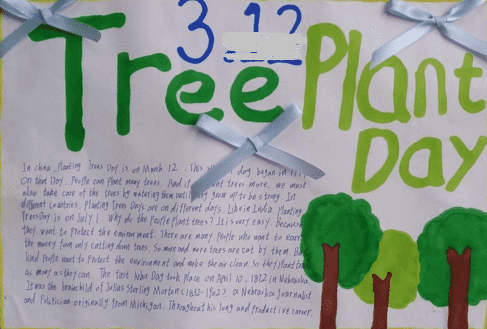 3.12
Tree Plant
Day
In china, Planting Trees Day is on March 12. This day began in
On that Day. People can Plant many trees. And if plant trees more, we must
also take care of the trees by watering them until grow up to be strong. In
different countries, Planting Tree Days are on different days. Like in India, Planting
Trees Day is on July 1. Why do the People Plant trees? It is very easy. Because
they want to Protect the environment. There are many People who want to
the money from only cutting down trees. So more and more trees are cut by them. But
kind People want to Protect the environment and make the air clean. So they Plant trees
as many as they can. The first Arbor Day took place on April 10, 1872 in Nebraska.
It was the brainchild of Julius Sterling Morton (1832-1902), a Nebraska journalist
and Politician originally from Michigan. Throughout his long and Productive career,